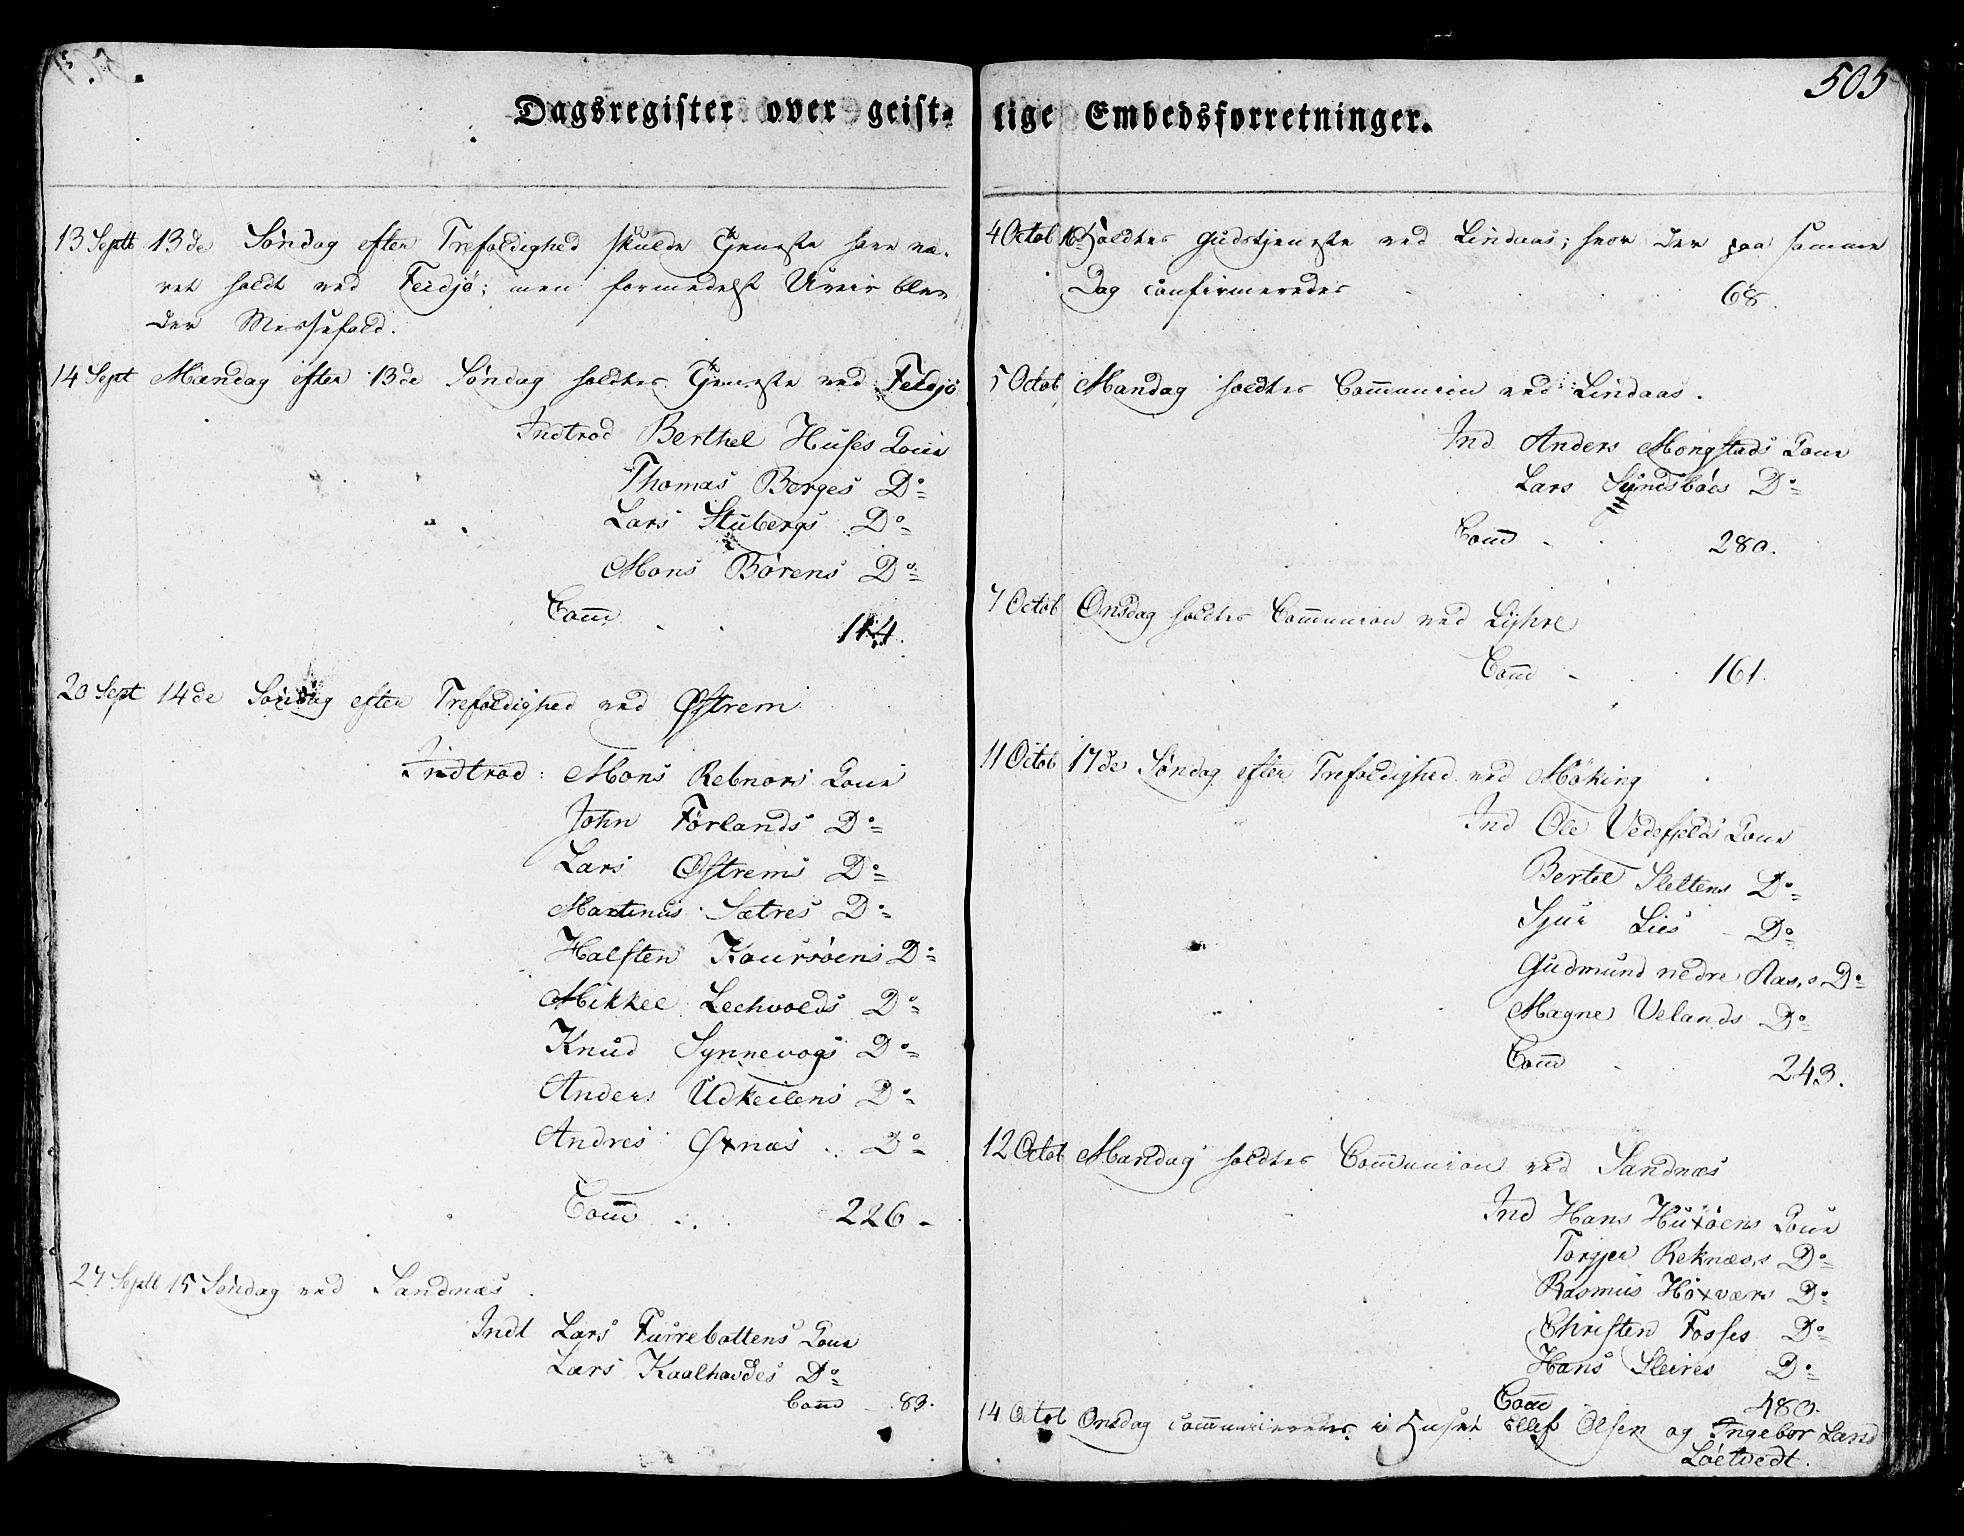 505
Dagsregister over geist- lige Embedsforretninger.
13 Septb 13de Søndag efter Trefoldighed skulde Tjeneste have væ-
ret holdt ved Fedjø; men formedelst Uveir blev
der Messefald.
14 Sept Mandag efter 13de Søndag holdtes Tjeneste ved Fedjø
Indtrod Berthel Huses Kone
Thomas Berges Do
Lars Stubergs Do
Mons Børens Do
Com̅ . . 114.
20 Sept 14de Søndag efter Trefoldighed ved Østrem
Indtrod: Mons Rebnors Kone
John Førlands Do
Lars Østrems Do
Martinus Sætres Do
Halsten Koursøens Do
Mikkel Lechvolds Do
Knud Synnevogs Do
Anders Udkeilens Do
Andres Øxnæs Do
Com̅ . . 226.
27 Septb 15 Søndag ved Sandnæs.
Indt Lars Furrebottens Kone
Lars Kaalhavdes Do
Com̅ 83.
4 Octob 16 Holdtes Gudstjeneste ved Lindaas; hvor der paa samme
Dag confirmeredes . 68.
5 Octob Mandag holdtes Com̅union ved Lindaas.
Ind Anders Mongstads Kone
Lars Sundsbøes Do
Com̅ . . 280.
7 Octob Onsdag holdtes Com̅union ved Lyhre
Com̅ . . 161.
11 Octob 17de Søndag efter Trefoldighed ved Møking
Ind Ole Vedefjelds Kone
Bertel Slettens Do
Sjur Lies Do
Gudmund nedre Aas,s Do
Magne Velands Do
Com̅ . 243.
12 Octob Mandag holdtes Com̅union ved Sandnæs
Ind Hans Huxøens Kone
Torgjer Reknæs,s Do
Rasmus Høxværs Do
Christen Fosses Do
Hans Sleires Do
Com̅ 480.
14 Octob Onsdag communiceredes i Huset Ellef Olsen og Ingebor Land
Løetvedt.